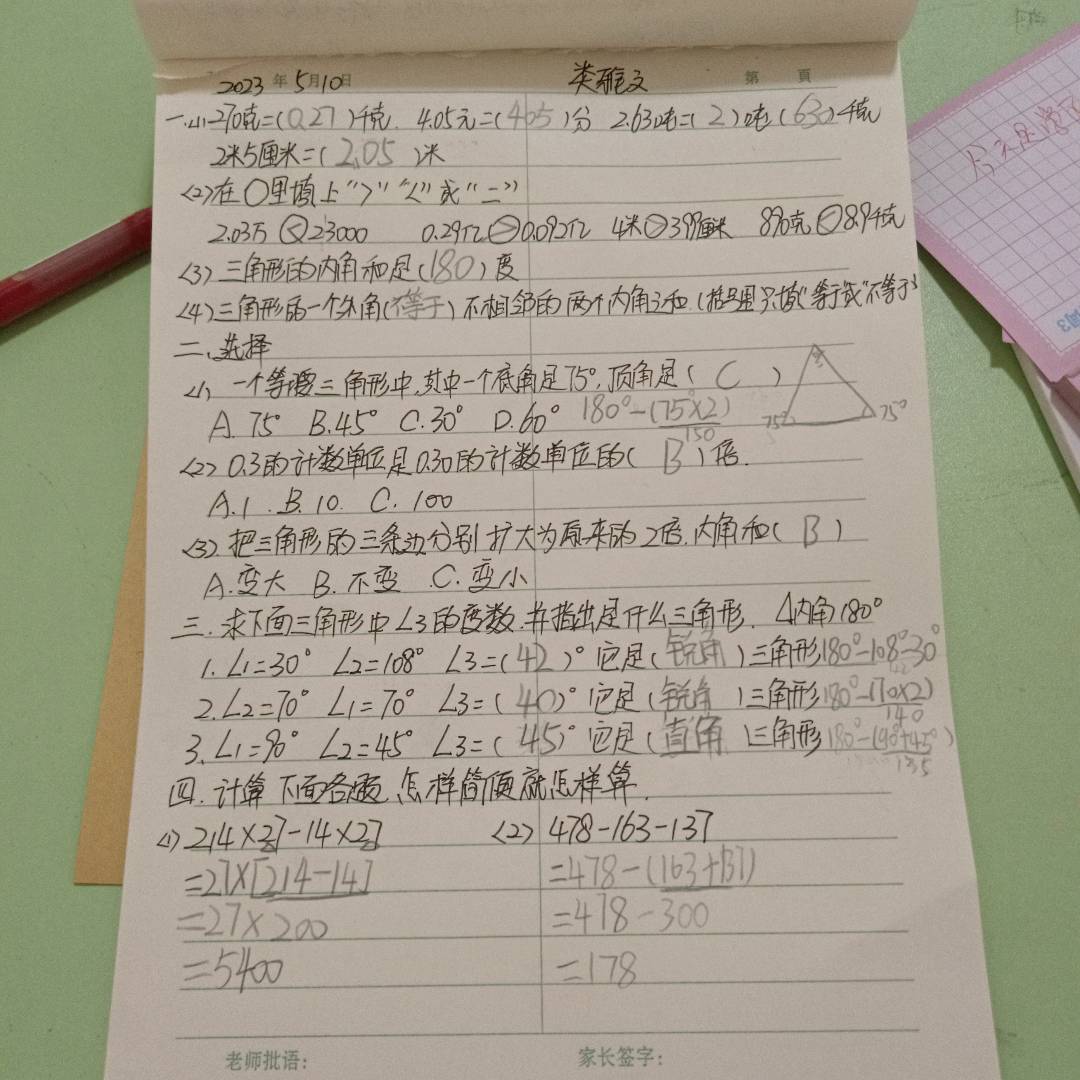 2023年5月10日 类雅文 第 頁
一.(1)270克=(0.27)千克. 4.05元=(405)分 2.63吨=(2)吨(630)千克
2米5厘米=(2.05)米
<2>在○里填上">""<"或"="
2.03万<23000 0.29亿>0.092亿 4米>399厘米 890克<8.9千克
<3>三角形的内角和是(180)度
<4>三角形的一个外角(不等于)不相邻的两个内角之和.(括号里只填"等于"或"不等于")
二、选择
<1>一个等腰三角形中,其中一个底角是75°,顶角是( C )
A.75° B.45° C.30° D.60° 180°-(75°×2)
150
75° 75°
<2>0.3的计数单位是0.30的计数单位的( B )倍.
A.1 .B.10. C.100
<3>把三角形的三条边分别扩大为原来的2倍.内角和( B )
A.变大 B.不变 .C.变小
三.求下面三角形中∠3的度数.并指出是什么三角形. △内角180°
1.∠1=30° ∠2=108° ∠3=(42)°它是(锐角)三角形180°-108°-30°
2.∠2=70° ∠1=70° ∠3=(40)°它是(锐角)三角形180°-(70×2)
140
3.∠1=90° ∠2=45° ∠3=(45)°它是(直角)三角形180°-(90°+45°)
135
四.计算下面各题,怎样简便就怎样算.
<1>214×27-14×27 <2>478-163-137
=27×[214-14] =478-(163+137)
=27×200 =478-300
=5400 =178
老师批语: 家长签字: